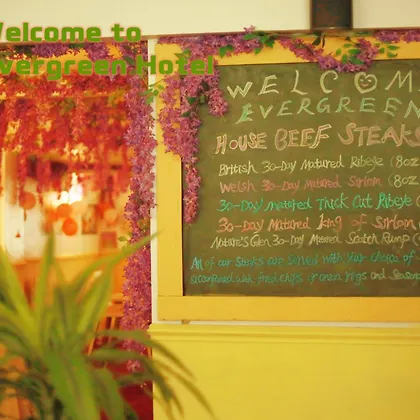 Welcome to
Evergreen Hotel
WELCOM
EVERGREEN
HOUSE BEEF STEAKS
British 30-Day Matured Ribeye (8oz
Welsh 30-Day Matured Sirloin (8oz
30-Day Matured Thick Cut Ribeye
30-Day Matured King of Sirloin
Nature's Glen 30-Day Matured Scotch Rump
All of our Steaks are served with Your choice of
fried chips, green Vegs and Seasonal